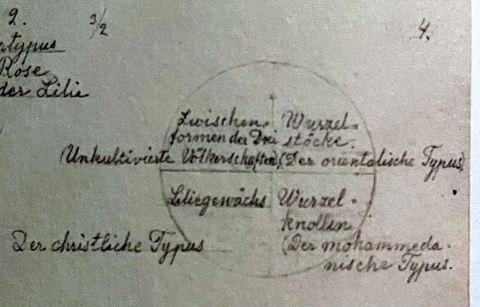 2. 3/2 4.
rtypus
Rose
der Lilie
Zwischen- Wurzel-
formen der Drei stöcke.
Unkultivierte Völkerschaften (Der orientalische Typus)
Liliegewächs Wurzel-
knollen
Der christliche Typus (Der mohammeda-
nische Typus.